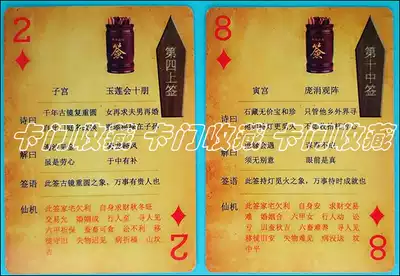 2
签
第四上签
子宫 玉莲会十朋
诗曰 千年古镜复重圆 女再求夫男再婚
解曰
虽是劳心 于中有补
签语 此签古镜重圆之象,万事有贵人也
仙机 此签家宅欠利 自身 求财秋冬旺
交易允 婚姻成 行人至 寻人见
六甲祈保 蚕畜可食 讼不利 移
徙守旧 失物迟见 病祈福 山坟
吉
2
8
签
第十中签
寅宫 庞涓观阵
诗曰 石藏无价宝和珍 只管他乡外界寻
解曰
须无别意 眼前是真
签语 此签持灯觅火之象,万事待时成就也
仙机 此签家宅欠安 自身安 求财交易
难 婚姻合 六甲女 行人动 讼
行 田蚕秋吉 六畜难养 寻人见
移徙旧安 失物难见 病没送 坟
中平
8
卡门收藏卡门收藏卡门收藏